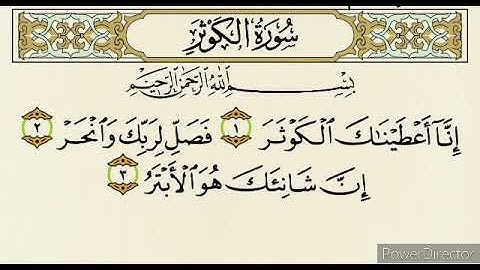 سُورَةُ الكَوْثَرِ
بِسْمِ ٱللَّهِ ٱلرَّحْمَٰنِ ٱلرَّحِيمِ
إِنَّآ أَعْطَيْنَٰكَ ٱلْكَوْثَرَ ١ فَصَلِّ لِرَبِّكَ وَٱنْحَرْ ٢
إِنَّ شَانِئَكَ هُوَ ٱلْأَبْتَرُ ٣
PowerDirector